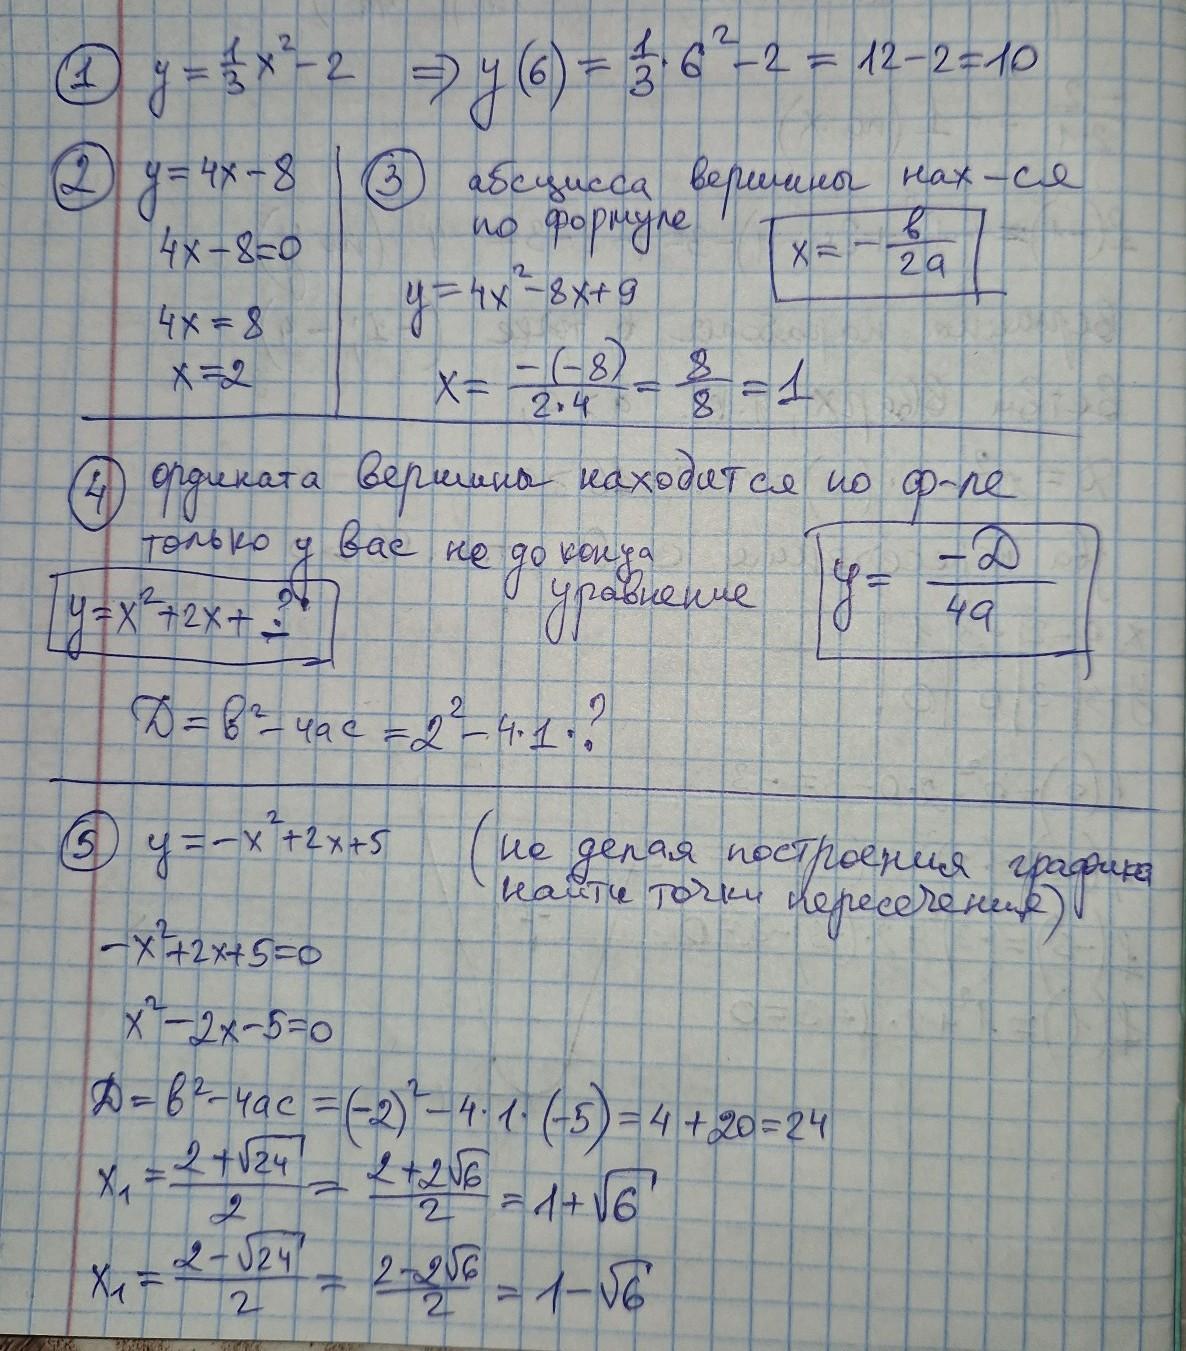 ① y = 1/3 x² - 2 ⇒ y(6) = 1/3 · 6² - 2 = 12 - 2 = 10
② y = 4x - 8
4x - 8 = 0
4x = 8
x = 2
③ абсцисса вершины нах-ся
по формуле x = - в/2а
y = 4x² - 8x + 9
x = -(-8)/2·4 = 8/8 = 1
④ ордината вершины находится по ф-ле
только у вас не до конца
уравнение y = -D/4а
y = x² + 2x + ?
D = в² - 4ас = 2² - 4·1·?
⑤ y = -x² + 2x + 5 (не делая построения графика
найти точки пересечения)
-x² + 2x + 5 = 0
x² - 2x - 5 = 0
D = в² - 4ас = (-2)² - 4·1·(-5) = 4 + 20 = 24
x₁ = 2 + √24/2 = 2 + 2√6/2 = 1 + √6
x₁ = 2 - √24/2 = 2 - 2√6/2 = 1 - √6